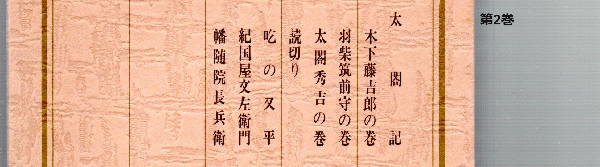 太閤記
木下藤吉郎の巻
羽柴筑前守の巻
太閤秀吉の巻
読切り
吃の又平
紀国屋文左衛門
幡随院長兵衛
第2巻